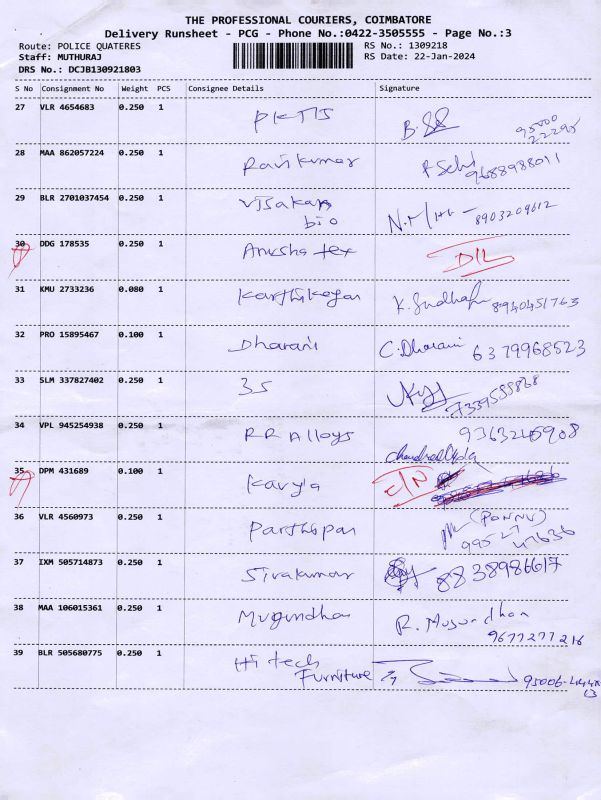 THE PROFESSIONAL COURIERS, COIMBATORE
Delivery Runsheet - PCG - Phone No.:0422-3505555 - Page No.:3
Route: POLICE QUATERES RS No.: 1309218
Staff: MUTHURAJ RS Date: 22-Jan-2024
DRS No.: DCJB130921803
S No Consignment No Weight PCS Consignee Details Signature
27 VLR 4654683 0.250 1
95000
22295
28 MAA 862057224 0.250 1 Ravikumar 9688988011
29 BLR 2701037454 0.250 1 Visakan
bio 8903209612
30 DDG 178535 0.250 1 Anusha tex DIL
31 KMU 2733236 0.080 1 Karthikeyan 8940451763
32 PRO 15895467 0.100 1 Dharani C. Dharani 6379968523
33 SLM 337827402 0.250 1 3S
34 VPL 945254938 0.250 1 RR Alloys
35 DPM 431689 0.100 1 Kavya
36 VLR 4560973 0.250 1 Parthipan (PONNU)
99527
47636
37 IXM 505714873 0.250 1 Sivakumar 8838986617
38 MAA 106015361 0.250 1 Mugundhan R. Mugundhan
9677277216
39 BLR 505680775 0.250 1 Hitech
Furniture